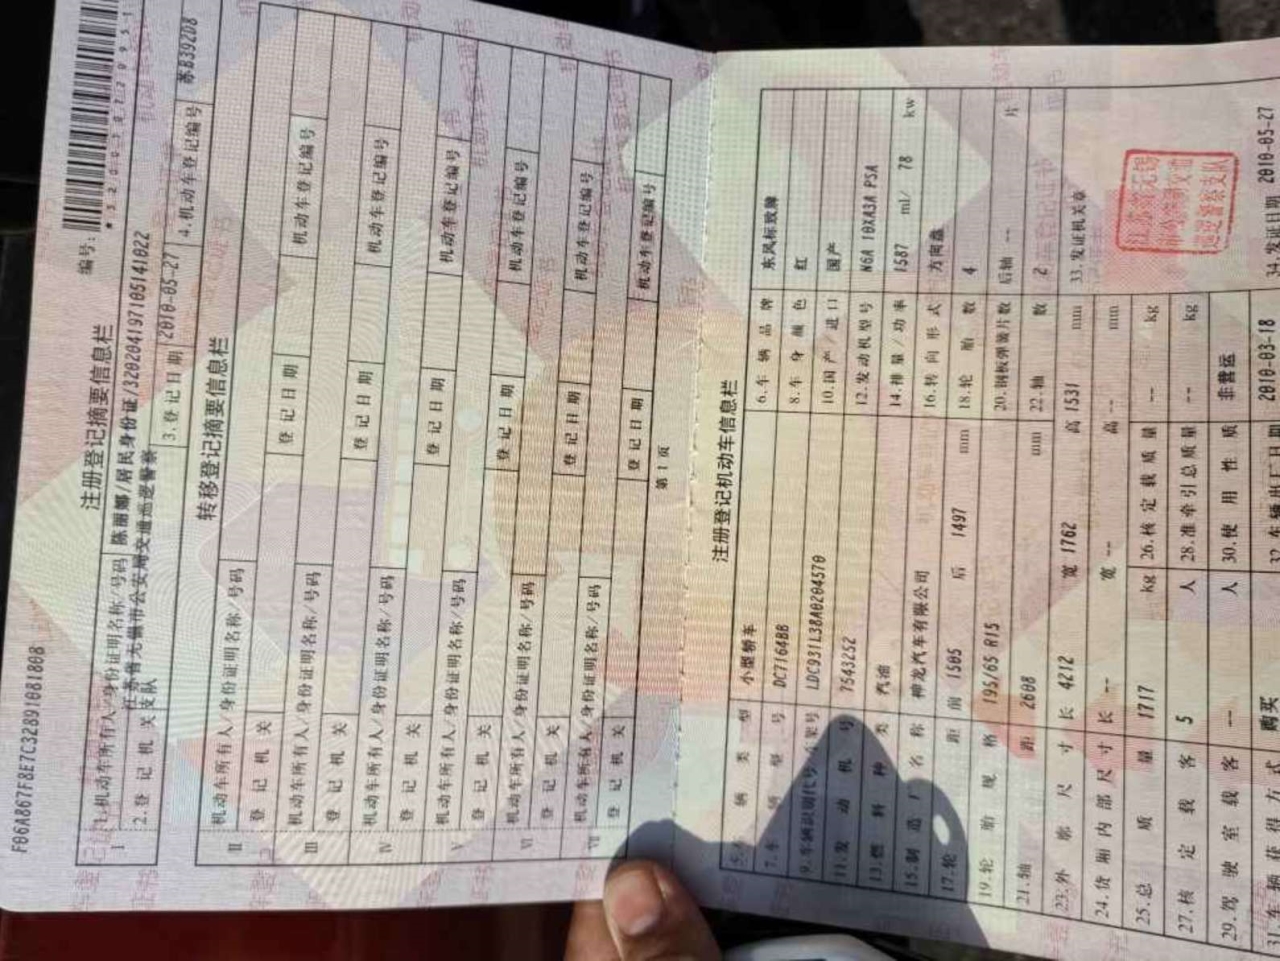 F06A867F8E7C32891081808
注册登记摘要信息栏
编号:
I 1.机动车所有人/身份证明名称/号码 陈丽娜/居民身份证/320204197105141022
2.登记机关 江苏省无锡市公安局交通巡逻警察支队 3.登记日期 2010-05-27 4.机动车登记编号 苏B392D8
转移登记摘要信息栏
II 机动车所有人/身份证明名称/号码
登记机关 登记日期 机动车登记编号
III 机动车所有人/身份证明名称/号码
登记机关 登记日期 机动车登记编号
IV 机动车所有人/身份证明名称/号码
登记机关 登记日期 机动车登记编号
V 机动车所有人/身份证明名称/号码
登记机关 登记日期 机动车登记编号
VI 机动车所有人/身份证明名称/号码
登记机关 登记日期 机动车登记编号
VII 机动车所有人/身份证明名称/号码
登记机关 登记日期 机动车登记编号
第1页
注册登记机动车信息栏
5.车辆类型 小型轿车 6.车辆品牌 东风标致牌
7.车辆型号 DC7164BB 8.车身颜色 红
9.车辆识别代号/车架号 LDC931L38A0204570 10.国产/进口 国产
11.发动机号 7543252 12.发动机型号 N6A 10XA3A PSA
13.燃料种类 汽油 14.排量/功率 1587 ml/ 78 kw
15.制造厂名称 神龙汽车有限公司 16.转向形式 方向盘
17.轮距 前 1505 后 1497 mm 18.轮胎数 4
19.轮胎规格 195/65 R15 20.钢板弹簧片数 后轴 -- 片
21.轴距 2608 mm 22.轴数 2
23.外廓尺寸 长 4212 宽 1762 高 1531 mm 33.发证机关章
24.货厢内部尺寸 长 -- 宽 -- 高 -- mm
25.总质量 1717 kg 26.核定载质量 -- kg
27.核定载客 5 人 28.准牵引总质量 -- kg
29.驾驶室载客 -- 人 30.使用性质 非营运
31.车辆获得方式 购买 32.车辆出厂日期 2010-03-18 34.发证日期 2010-05-27
江苏省无锡
市公安局交通
巡逻警察支队